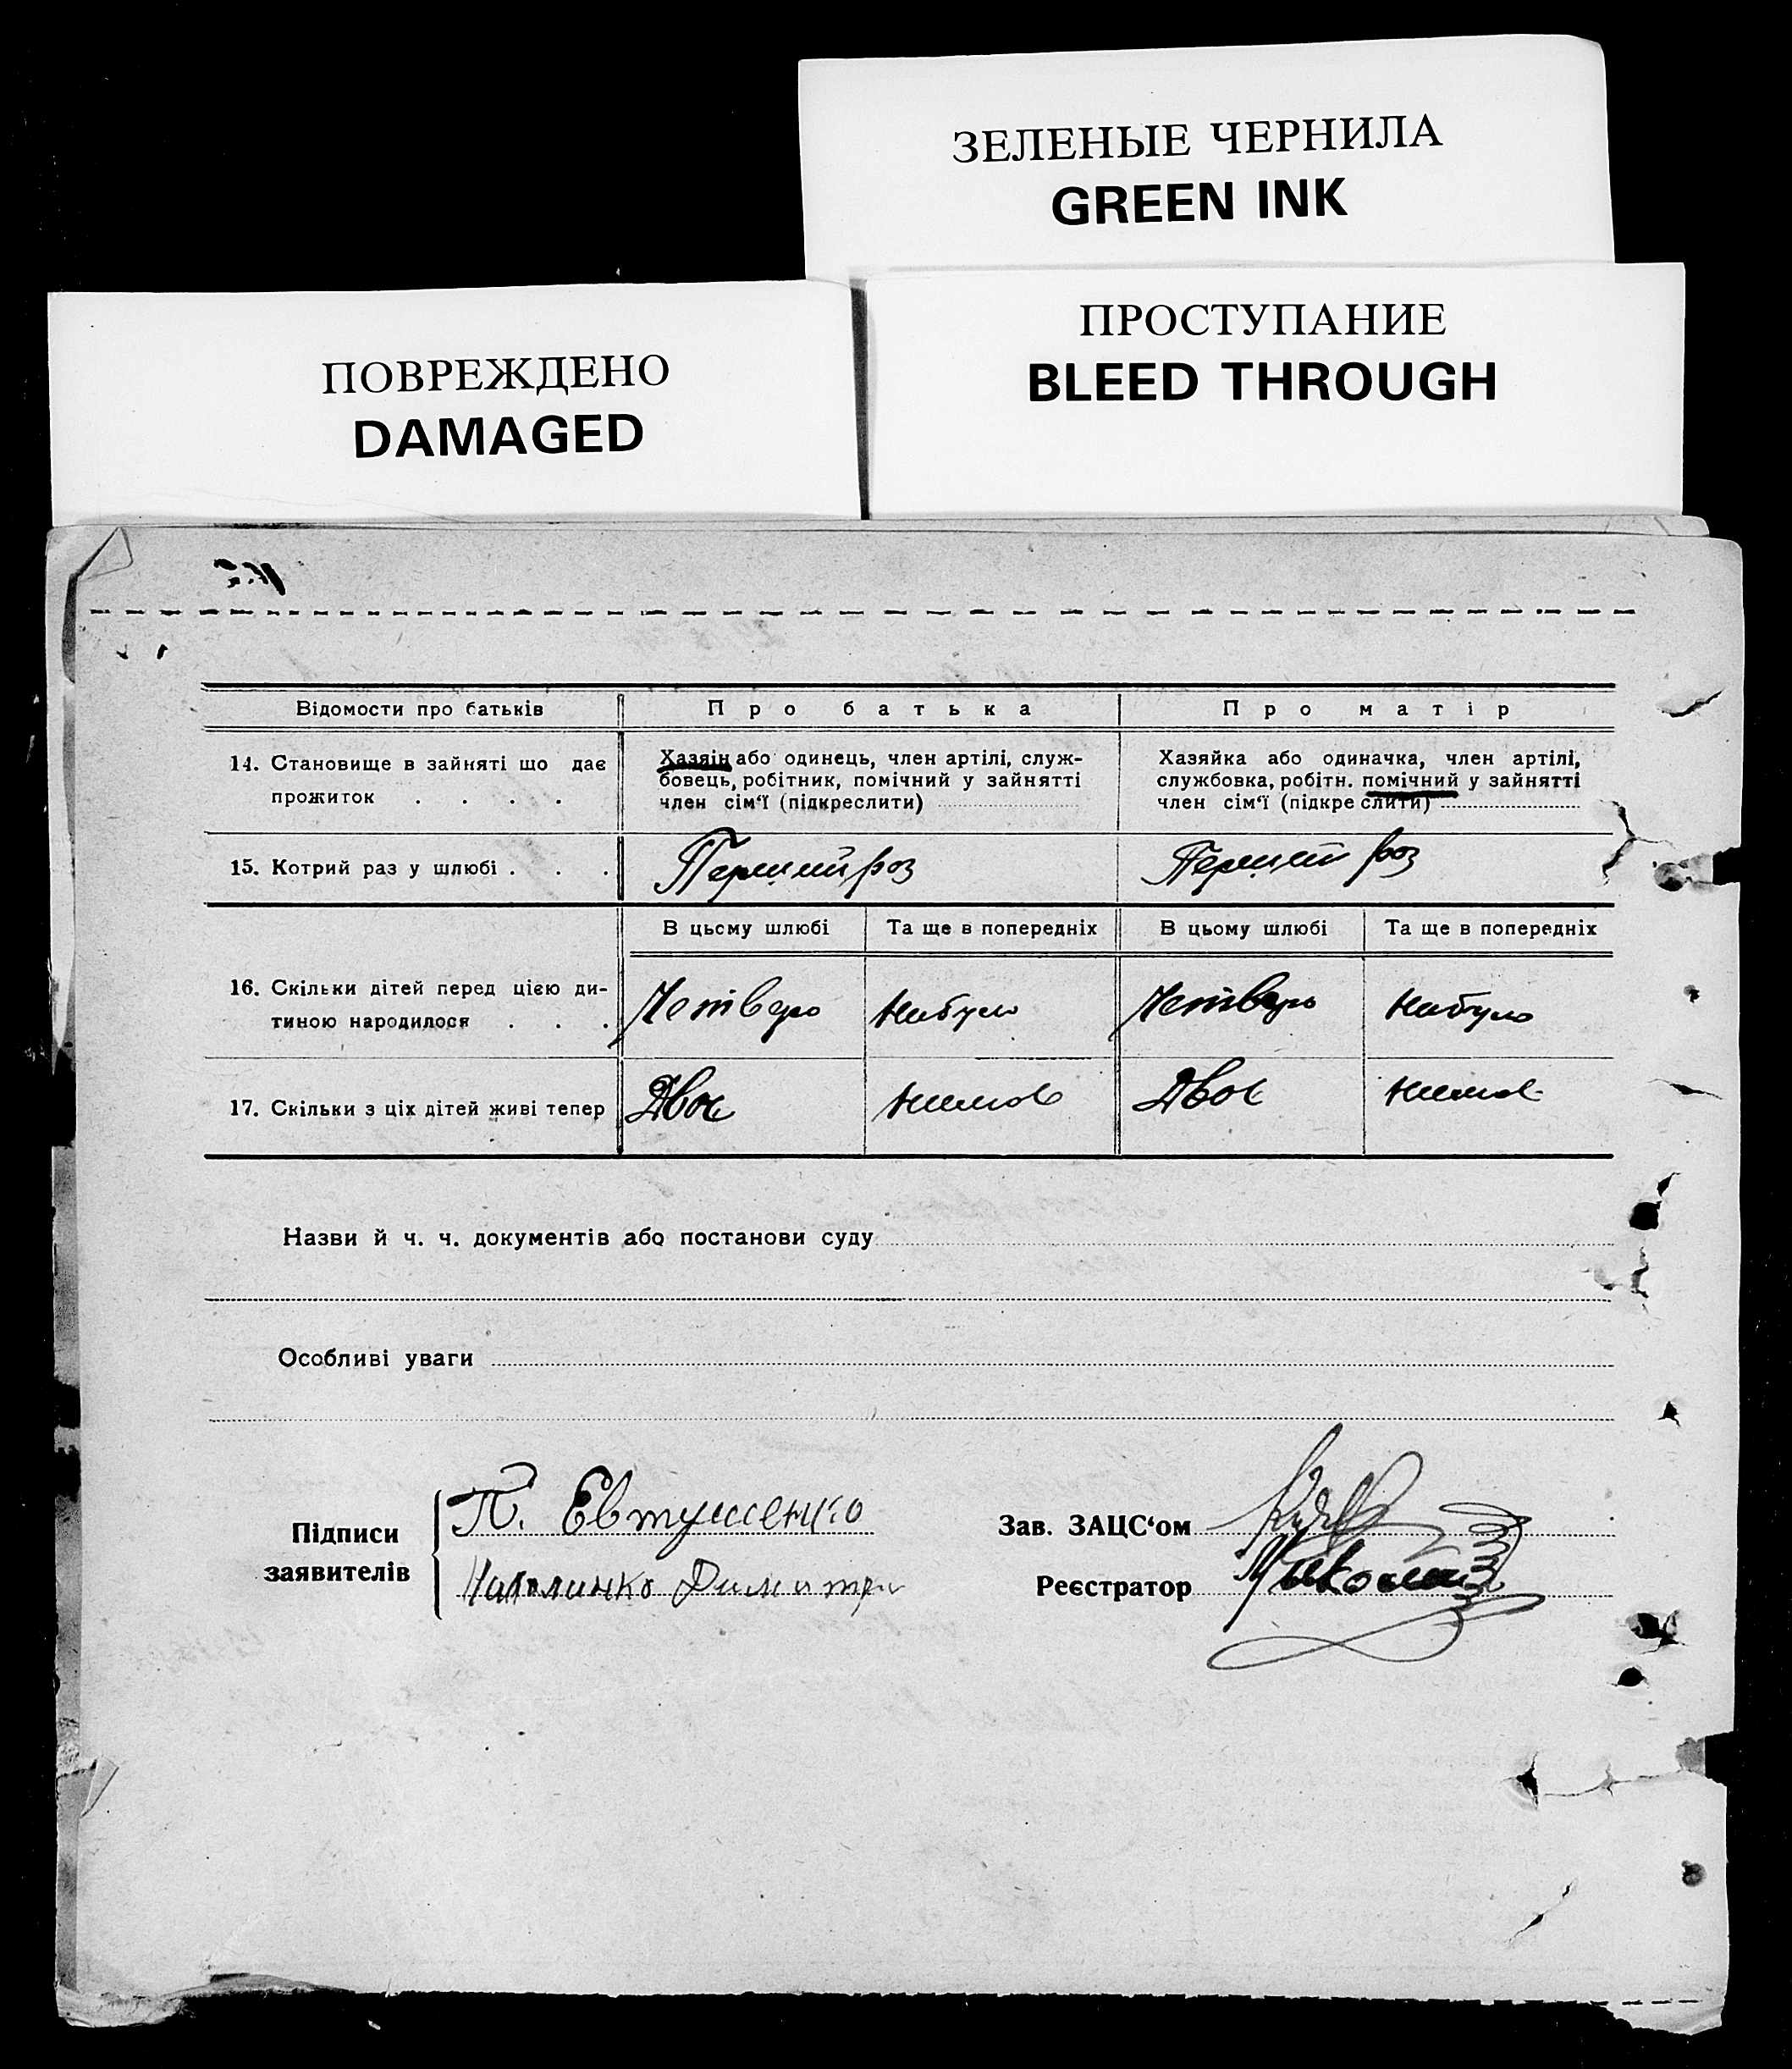 ЗЕЛЕНЫЕ ЧЕРНИЛА
GREEN INK
ПРОСТУПАНИЕ
BLEED THROUGH
ПОВРЕЖДЕНО
DAMAGED
Відомости про батьків
Про батька
Про матір
14. Становище в зайняті що дає
прожиток . . . .
Хазяін або одинець, член артілі, служ-
бовець, робітник, помічний у зайнятті
член сім‘ї (підкреслити)
Хазяйка або одиначка, член артілі,
службовка, робітн. помічний у зайнятті
член сім‘ї (підкреслити)
15. Котрий раз у шлюбі . . .
Перший раз
Перший раз
В цьому шлюбі
Та ще в попередніх
В цьому шлюбі
Та ще в попередніх
16. Скільки дітей перед цією ди-
тиною народилося . . .
Четверо
Небуло
Четверо
Небуло
17. Скільки з ціх дітей живі тепер
Двоє
Немає
Двоє
Немає
Назви й ч. ч. документів або постанови суду
Особливі уваги
Підписи
заявителів
П. Евтушенко
Димитри
Зав. ЗАЦС‘ом
Реєстратор